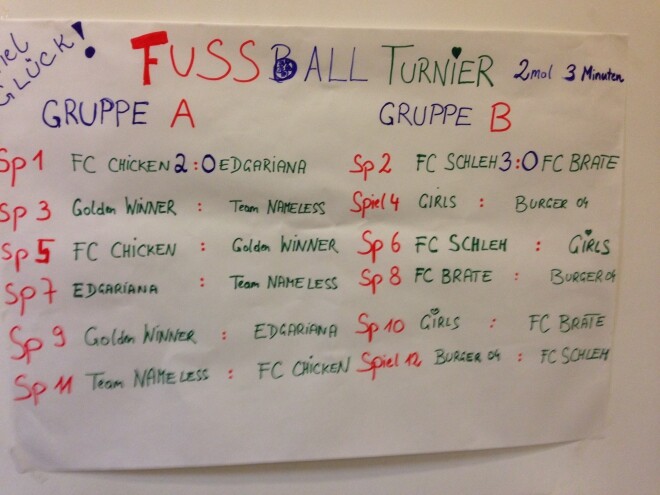 Viel
GLÜCK!
FUSSBALL TURNIER 2mal 3 Minuten
GRUPPE A
Sp 1 FC CHICKEN 2:0 EDGARIANA
Sp 3 Golden WINNER : Team NAMELESS
Sp 5 FC CHICKEN : Golden WINNER
Sp 7 EDGARIANA : Team NAMELESS
Sp 9 Golden WINNER : EDGARIANA
Sp 11 Team NAMELESS : FC CHICKEN
GRUPPE B
Sp 2 FC SCHLEH 3:0 FC BRATE
Spiel 4 GIRLS : BURGER 04
Sp 6 FC SCHLEH : GIRLS
Sp 8 FC BRATE : BURGER 04
Sp 10 GIRLS : FC BRATE
Spiel 12 BURGER 04 : FC SCHLEH